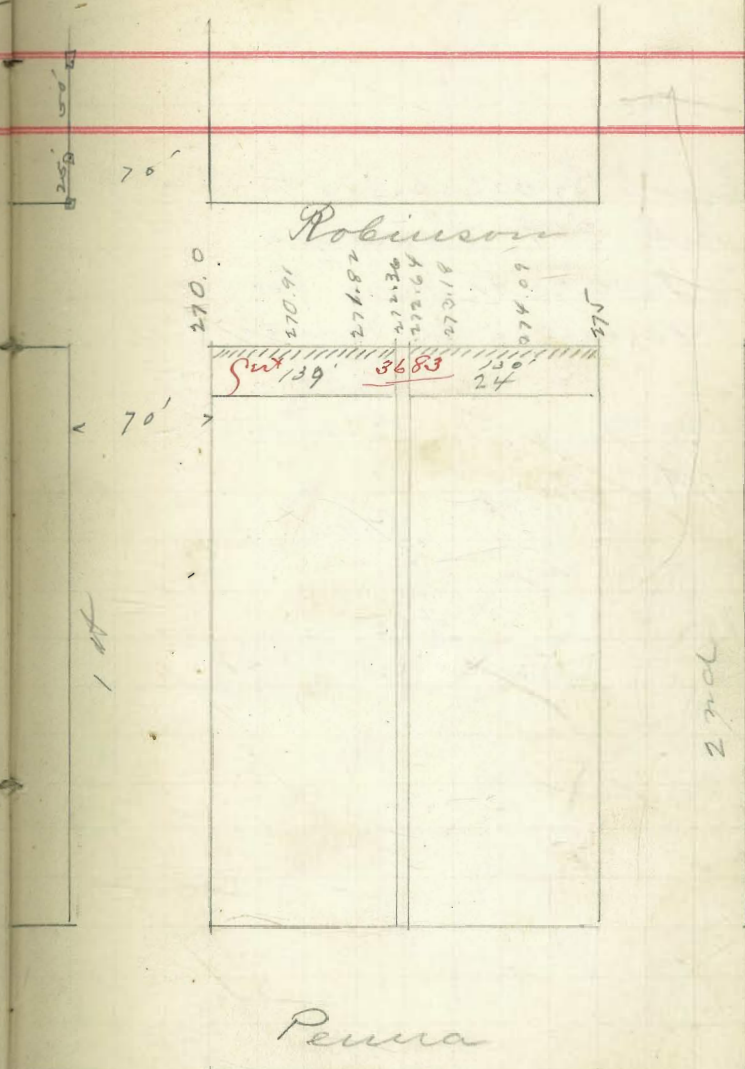 50'
25'
70'
Robinson
270.0
270.91
271.82
272.36
272.64
273.18
274.09
275
139'
3683
130'
24
70'
1 st
2 nd
Penna